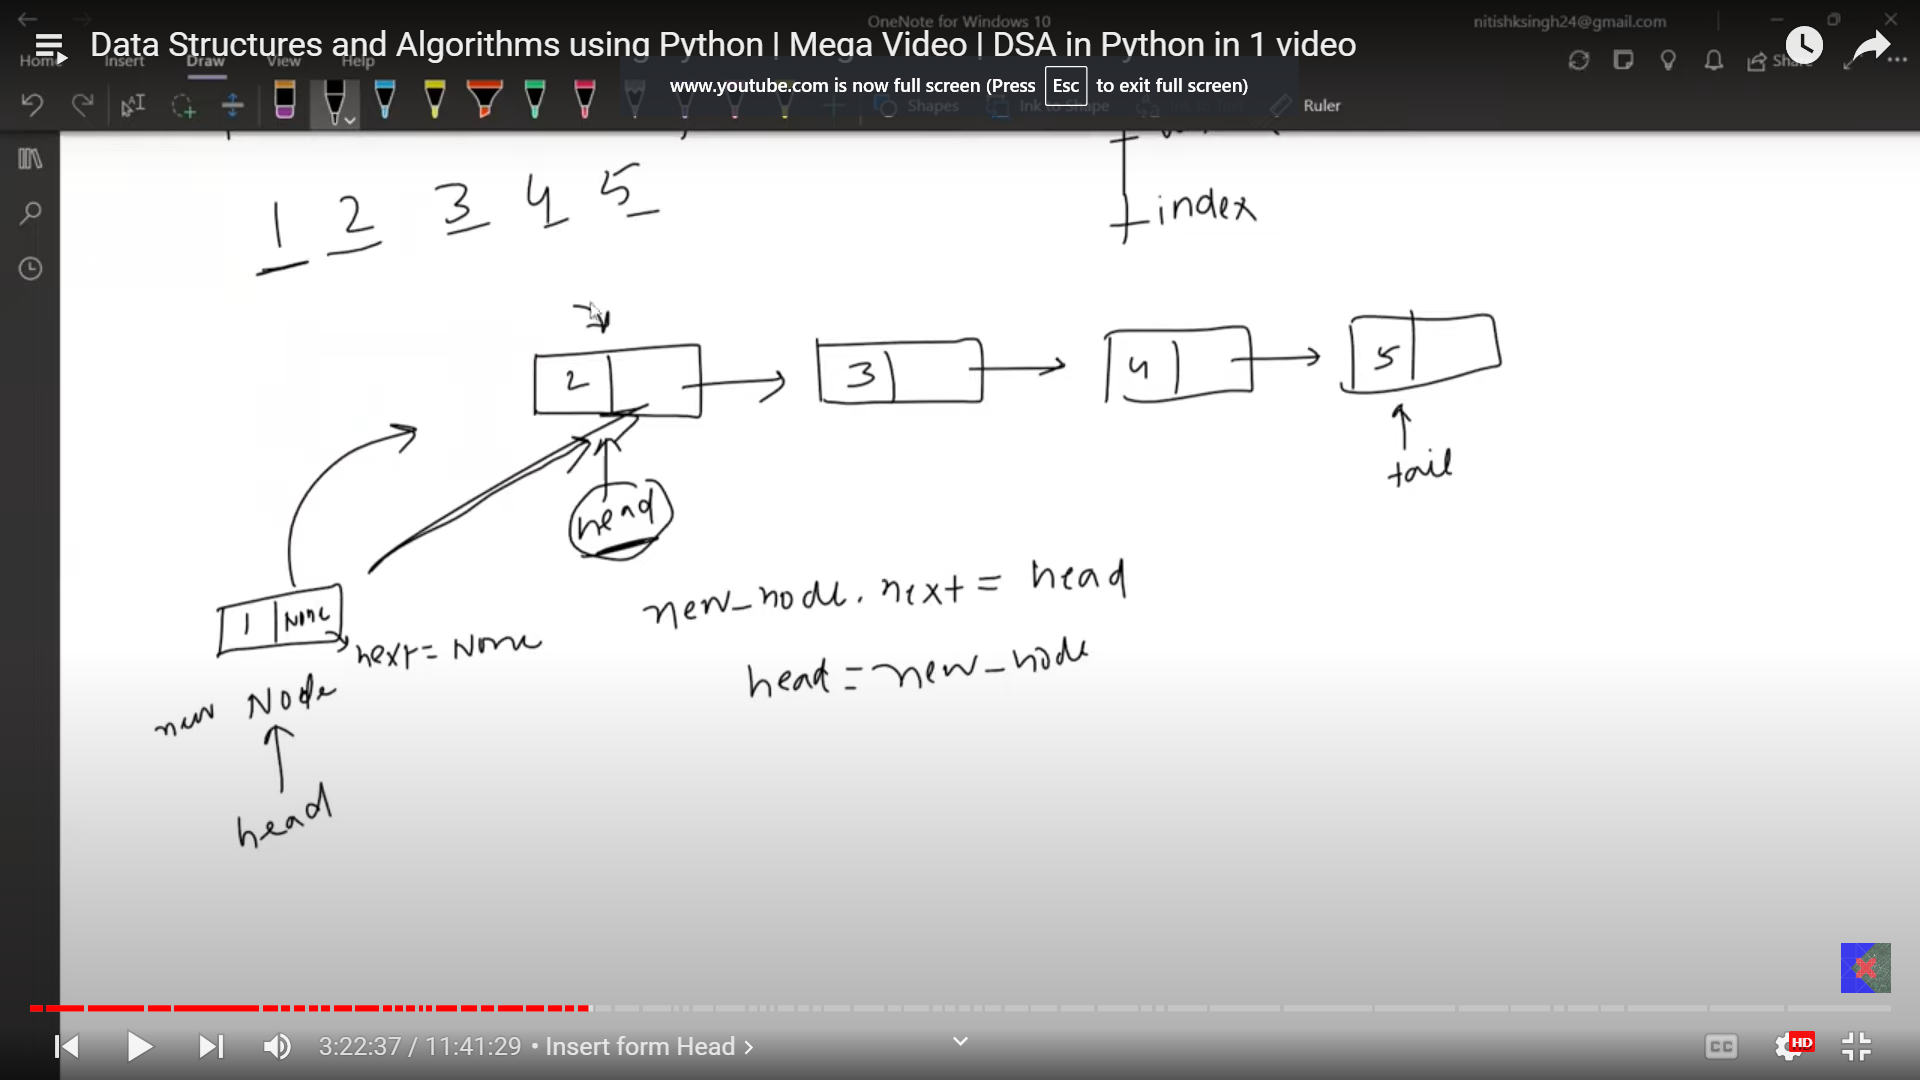 OneNote for Windows 10
nitishksingh24@gmail.com
Data Structures and Algorithms using Python | Mega Video | DSA in Python in 1 video
Home Insert Draw View Help
Share
www.youtube.com is now full screen (Press Esc to exit full screen)
Shapes Ink to Shape Ruler
1 2 3 4 5
index
2 3 4 5
tail
head
new_node.next = head
1 None
next = None
head = new_node
new Node
head
3:22:37 / 11:41:29 • Insert form Head >
CC HD